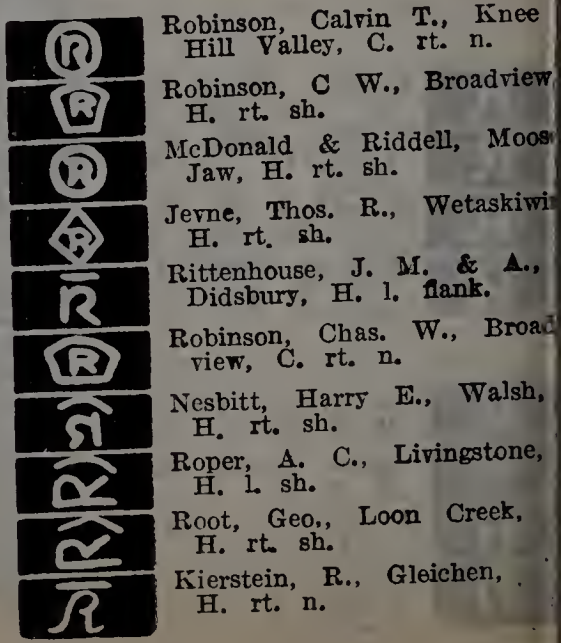 Robinson, Calvin T., Knee
Hill Valley, C. rt. n.
Robinson, C W., Broadview
H. rt. sh.
McDonald & Riddell, Moos
Jaw, H. rt. sh.
Jevne, Thos. R., Wetaskiwi
H. rt. sh.
Rittenhouse, J. M. & A.,
Didsbury, H. l. flank.
Robinson, Chas. W., Broad
view, C. rt. n.
Nesbitt, Harry E., Walsh,
H. rt. sh.
Roper, A. C., Livingstone,
H. l. sh.
Root, Geo., Loon Creek,
H. rt. sh.
Kierstein, R., Gleichen,
H. rt. n.